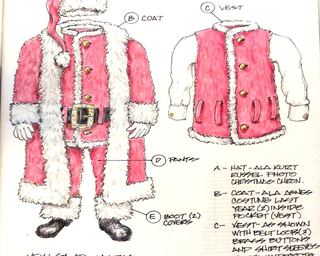 B COAT
C VEST
D PANTS
E BOOT (2)
COVERS
A - HAT - ALA KURT
RUSSEL PHOTO
CHRISTMAS CHRON.
B - COAT - ALA
COSTING LAST
YEAR (2) INSIDE
POCKET (VEST)
C - VEST - AS SHOWN
WITH BELT LOOPS (3)
BRASS BUTTONS
AND SHIRT SLEEVES